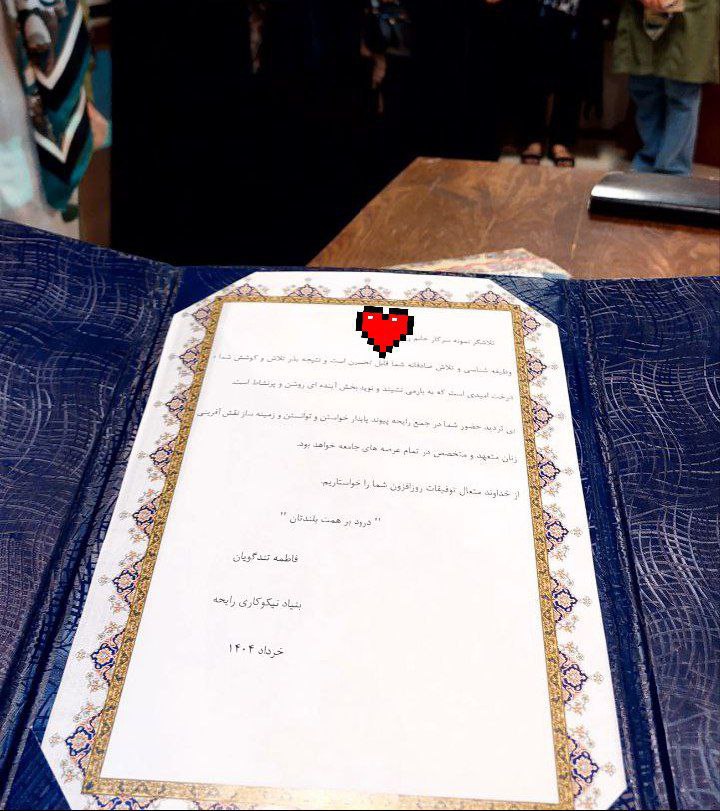 تلاشگر نمونه سرکار خانم
وظیفه شناسی و تلاش صادقانه شما قابل تحسین است و نتیجه بذر تلاش و کوشش شما ،
درخت امیدی است که به بارمی نشیند و نوید بخش آینده ای روشن و پرنشاط است.
بی تردید حضور شما در جمع رایحه پیوند پایدار خواستن و توانستن و زمینه ساز نقش آفرینی
زنان متعهد و متخصص در تمام عرصه های جامعه خواهد بود.
از خداوند متعال توفیقات روزافزون شما را خواستاریم.
" درود بر همت بلندتان "
فاطمه تندگویان
بنیاد نیکوکاری رایحه
خرداد ۱۴۰۴